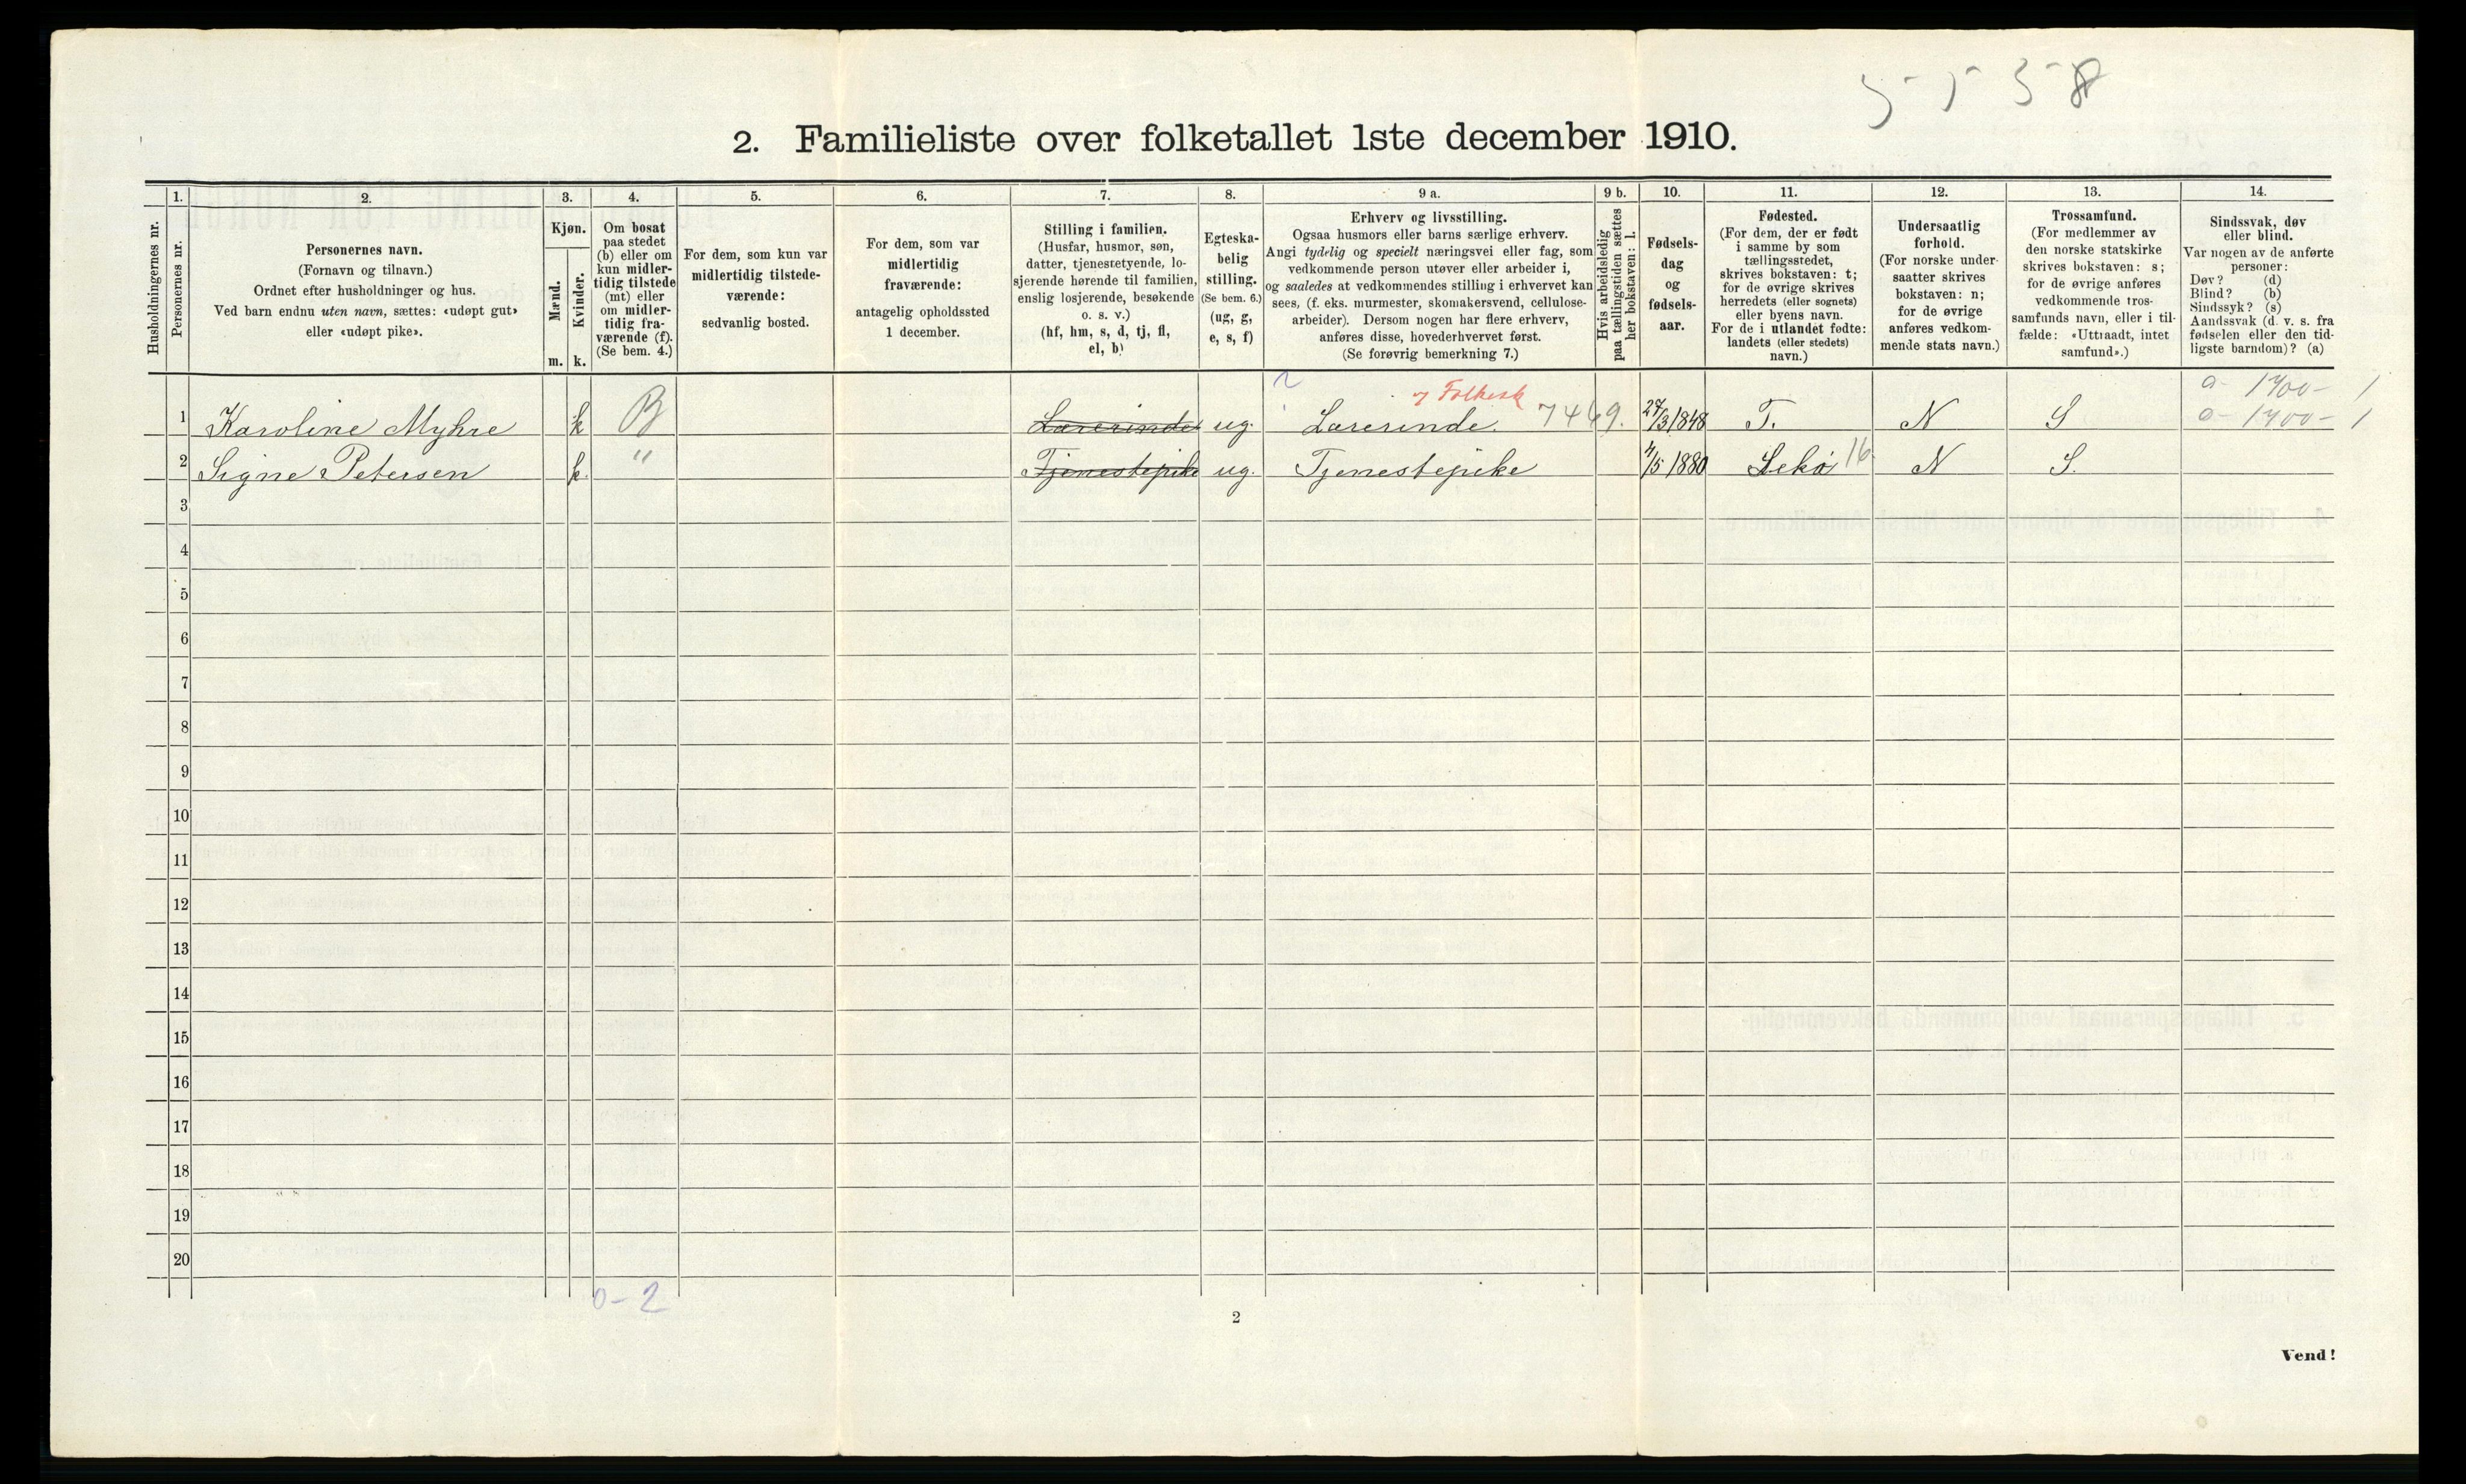 2. Familieliste over folketallet 1ste december 1910.
Husholdningernes nr.
1. Personernes nr.
2.
Personernes navn.
(Fornavn og tilnavn.)
Ordnet efter husholdninger og hus.
Ved barn endnu uten navn, sættes: «udøpt gut»
eller «udøpt pike».
3.
Kjøn.
Mænd. Kvinder.
m. k.
4.
Om bosat
paa stedet
(b) eller om
kun midler-
tidig tilstede
(mt) eller
om midler-
tidig fra-
værende (f).
(Se bem. 4.)
5.
For dem, som kun var
midlertidig tilstede-
værende:
sedvanlig bosted.
6.
For dem, som var
midlertidig
fraværende:
antagelig opholdssted
1 december.
7.
Stilling i familien.
(Husfar, husmor, søn,
datter, tjenestetyende, lo-
sjerende hørende til familien,
enslig losjerende, besøkende
o. s. v.)
(hf, hm, s, d, tj, fl,
el, b)
8.
Egteska-
belig
stilling.
(Se bem. 6.)
(ug, g,
e, s, f)
9 a.
Erhverv og livsstilling.
Ogsaa husmors eller barns særlige erhverv.
Angi tydelig og specielt næringsvei eller fag, som
vedkommende person utøver eller arbeider i,
og saaledes at vedkommendes stilling i erhvervet kan
sees, (f. eks. murmester, skomakersvend, cellulose-
arbeider). Dersom nogen har flere erhverv,
anføres disse, hovederhvervet først.
(Se forøvrig bemerkning 7.)
9 b.
Hvis arbeidsledig
paa tællingstiden sættes
her bokstaven: l.
10.
Fødsels-
dag
og
fødsels-
aar.
11.
Fødested.
(For dem, der er født
i samme by som
tællingsstedet,
skrives bokstaven: t;
for de øvrige skrives
herredets (eller sognets)
eller byens navn.
For de i utlandet fødte:
landets (eller stedets)
navn.)
12.
Undersaatlig
forhold.
(For norske under-
saatter skrives
bokstaven: n;
for de øvrige
anføres vedkom-
mende stats navn.)
13.
Trossamfund.
(For medlemmer av
den norske statskirke
skrives bokstaven: s;
for de øvrige anføres
vedkommende tros-
samfunds navn, eller i til-
fælde: «Uttraadt, intet
samfund».)
14.
Sindssvak, døv
eller blind.
Var nogen av de anførte
personer:
Døv? (d)
Blind? (b)
Sindssyk? (s)
Aandssvak (d. v. s. fra
fødselen eller den tid-
ligste barndom)? (a)
0- 1700- 1
1 Karoline Myhre k B Lærerinde ug. Lærerinde. 7469. 27/3 1848 T. N S 0- 1700- 1
2 Signe Petersen k. " Tjenestepike ug. Tjenestepike 4/5 1880 Lekö 16 N S.
3
4
5
6
7
8
9
10
11
12
13
14
15
16
17
18
19
20
0-2
2
Vend!